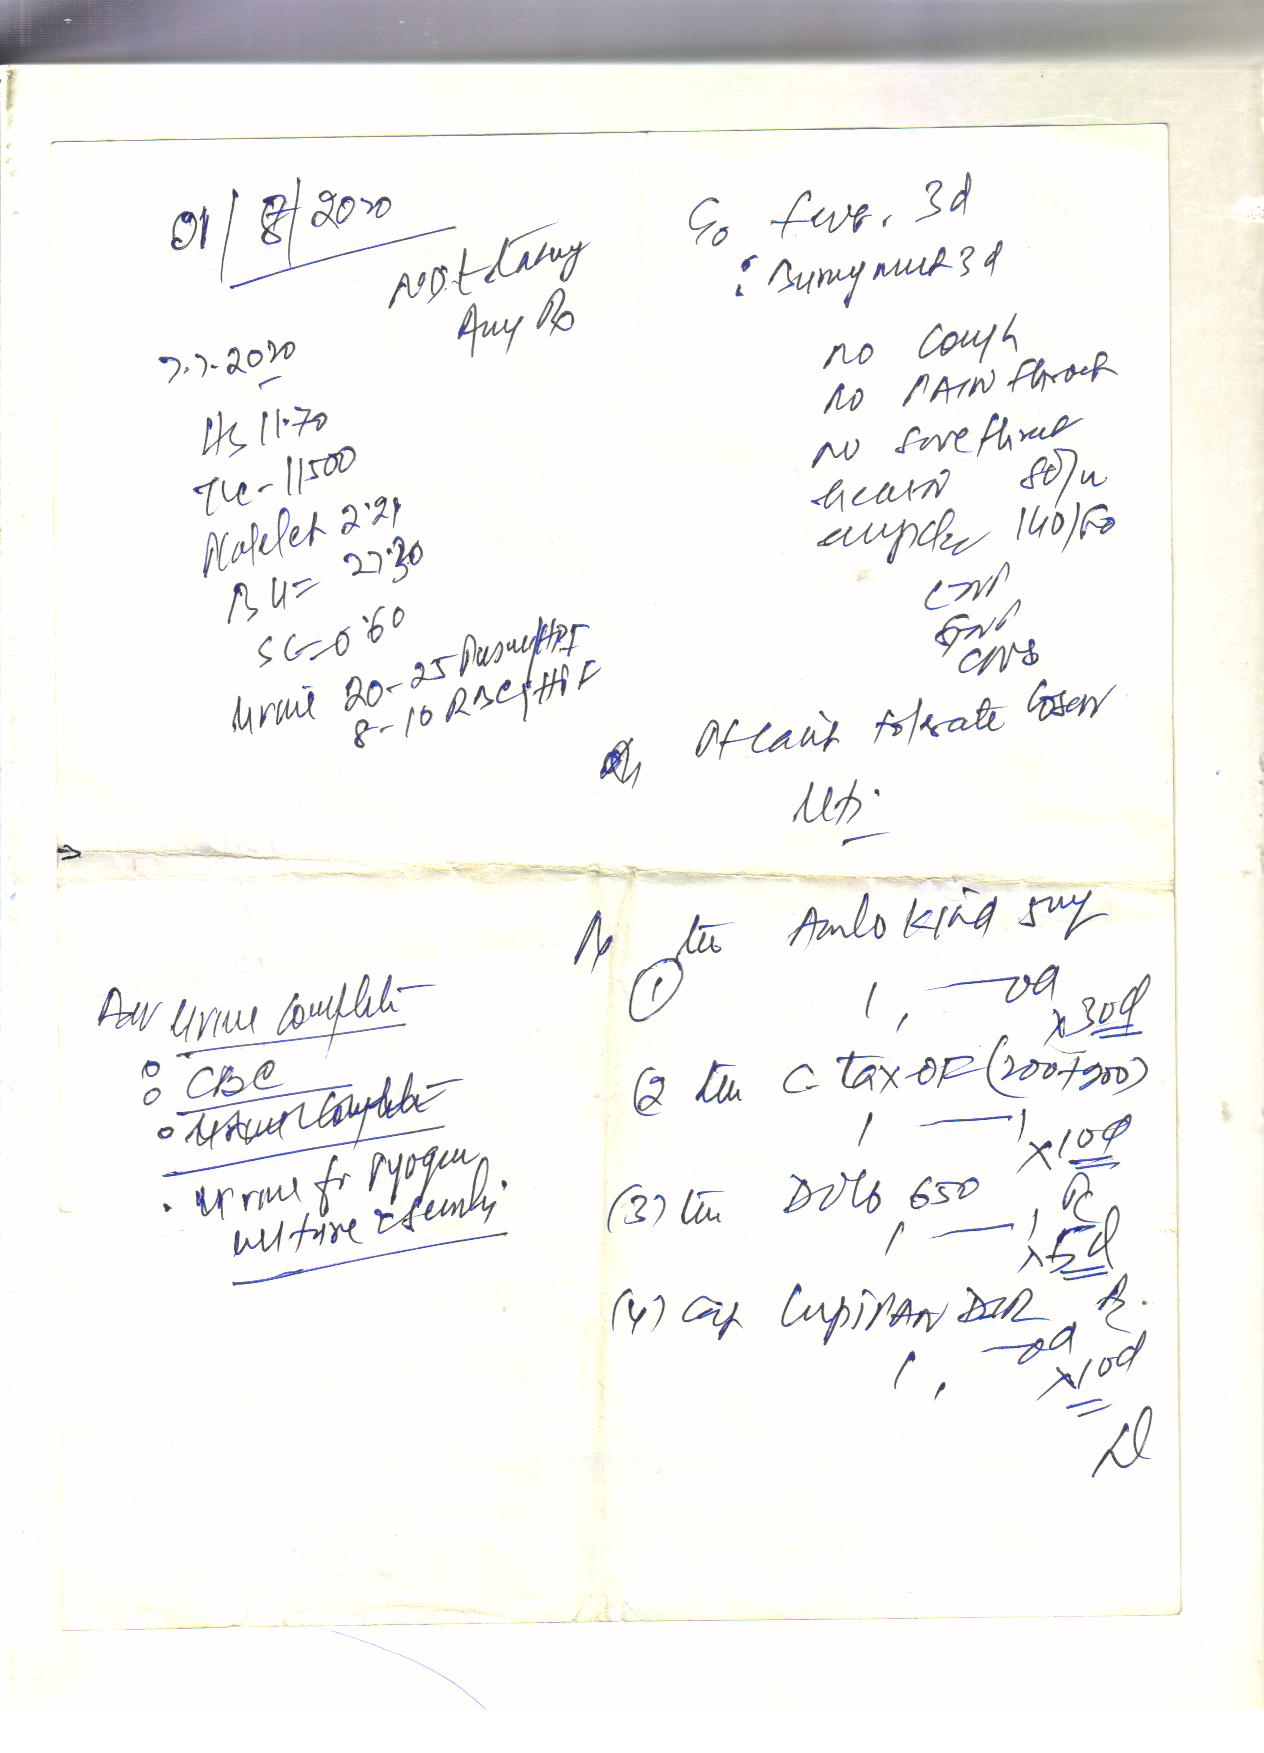 01/8/2020
Not taking
Any Rx
7.7.2020
Hb 11.70
TLC - 11500
Platelet 2.21
BU = 27.30
SC = 0.60
Urine 20-25 Puscell/HPF
8-10 RBC/HPF
C/o fever. 3d
: Burning mict 3d
no cough
no PAIN throat
no sore throat
80/m
140/80
CNS
Pt can't tolerate
UTI
Rx
① Tab Amlokind 5mg
1, — od
x 30d
(2 Tab C-tax-OF (200+200)
1 — 1
x 10d
(3) Tab Dolo 650
1 — 1
x 5d
(4) Cap LupiPAN DSR
1, — od
x 10d
Adv Urine Complete
CBC
Urine Complete
Urine for Pyogen
culture